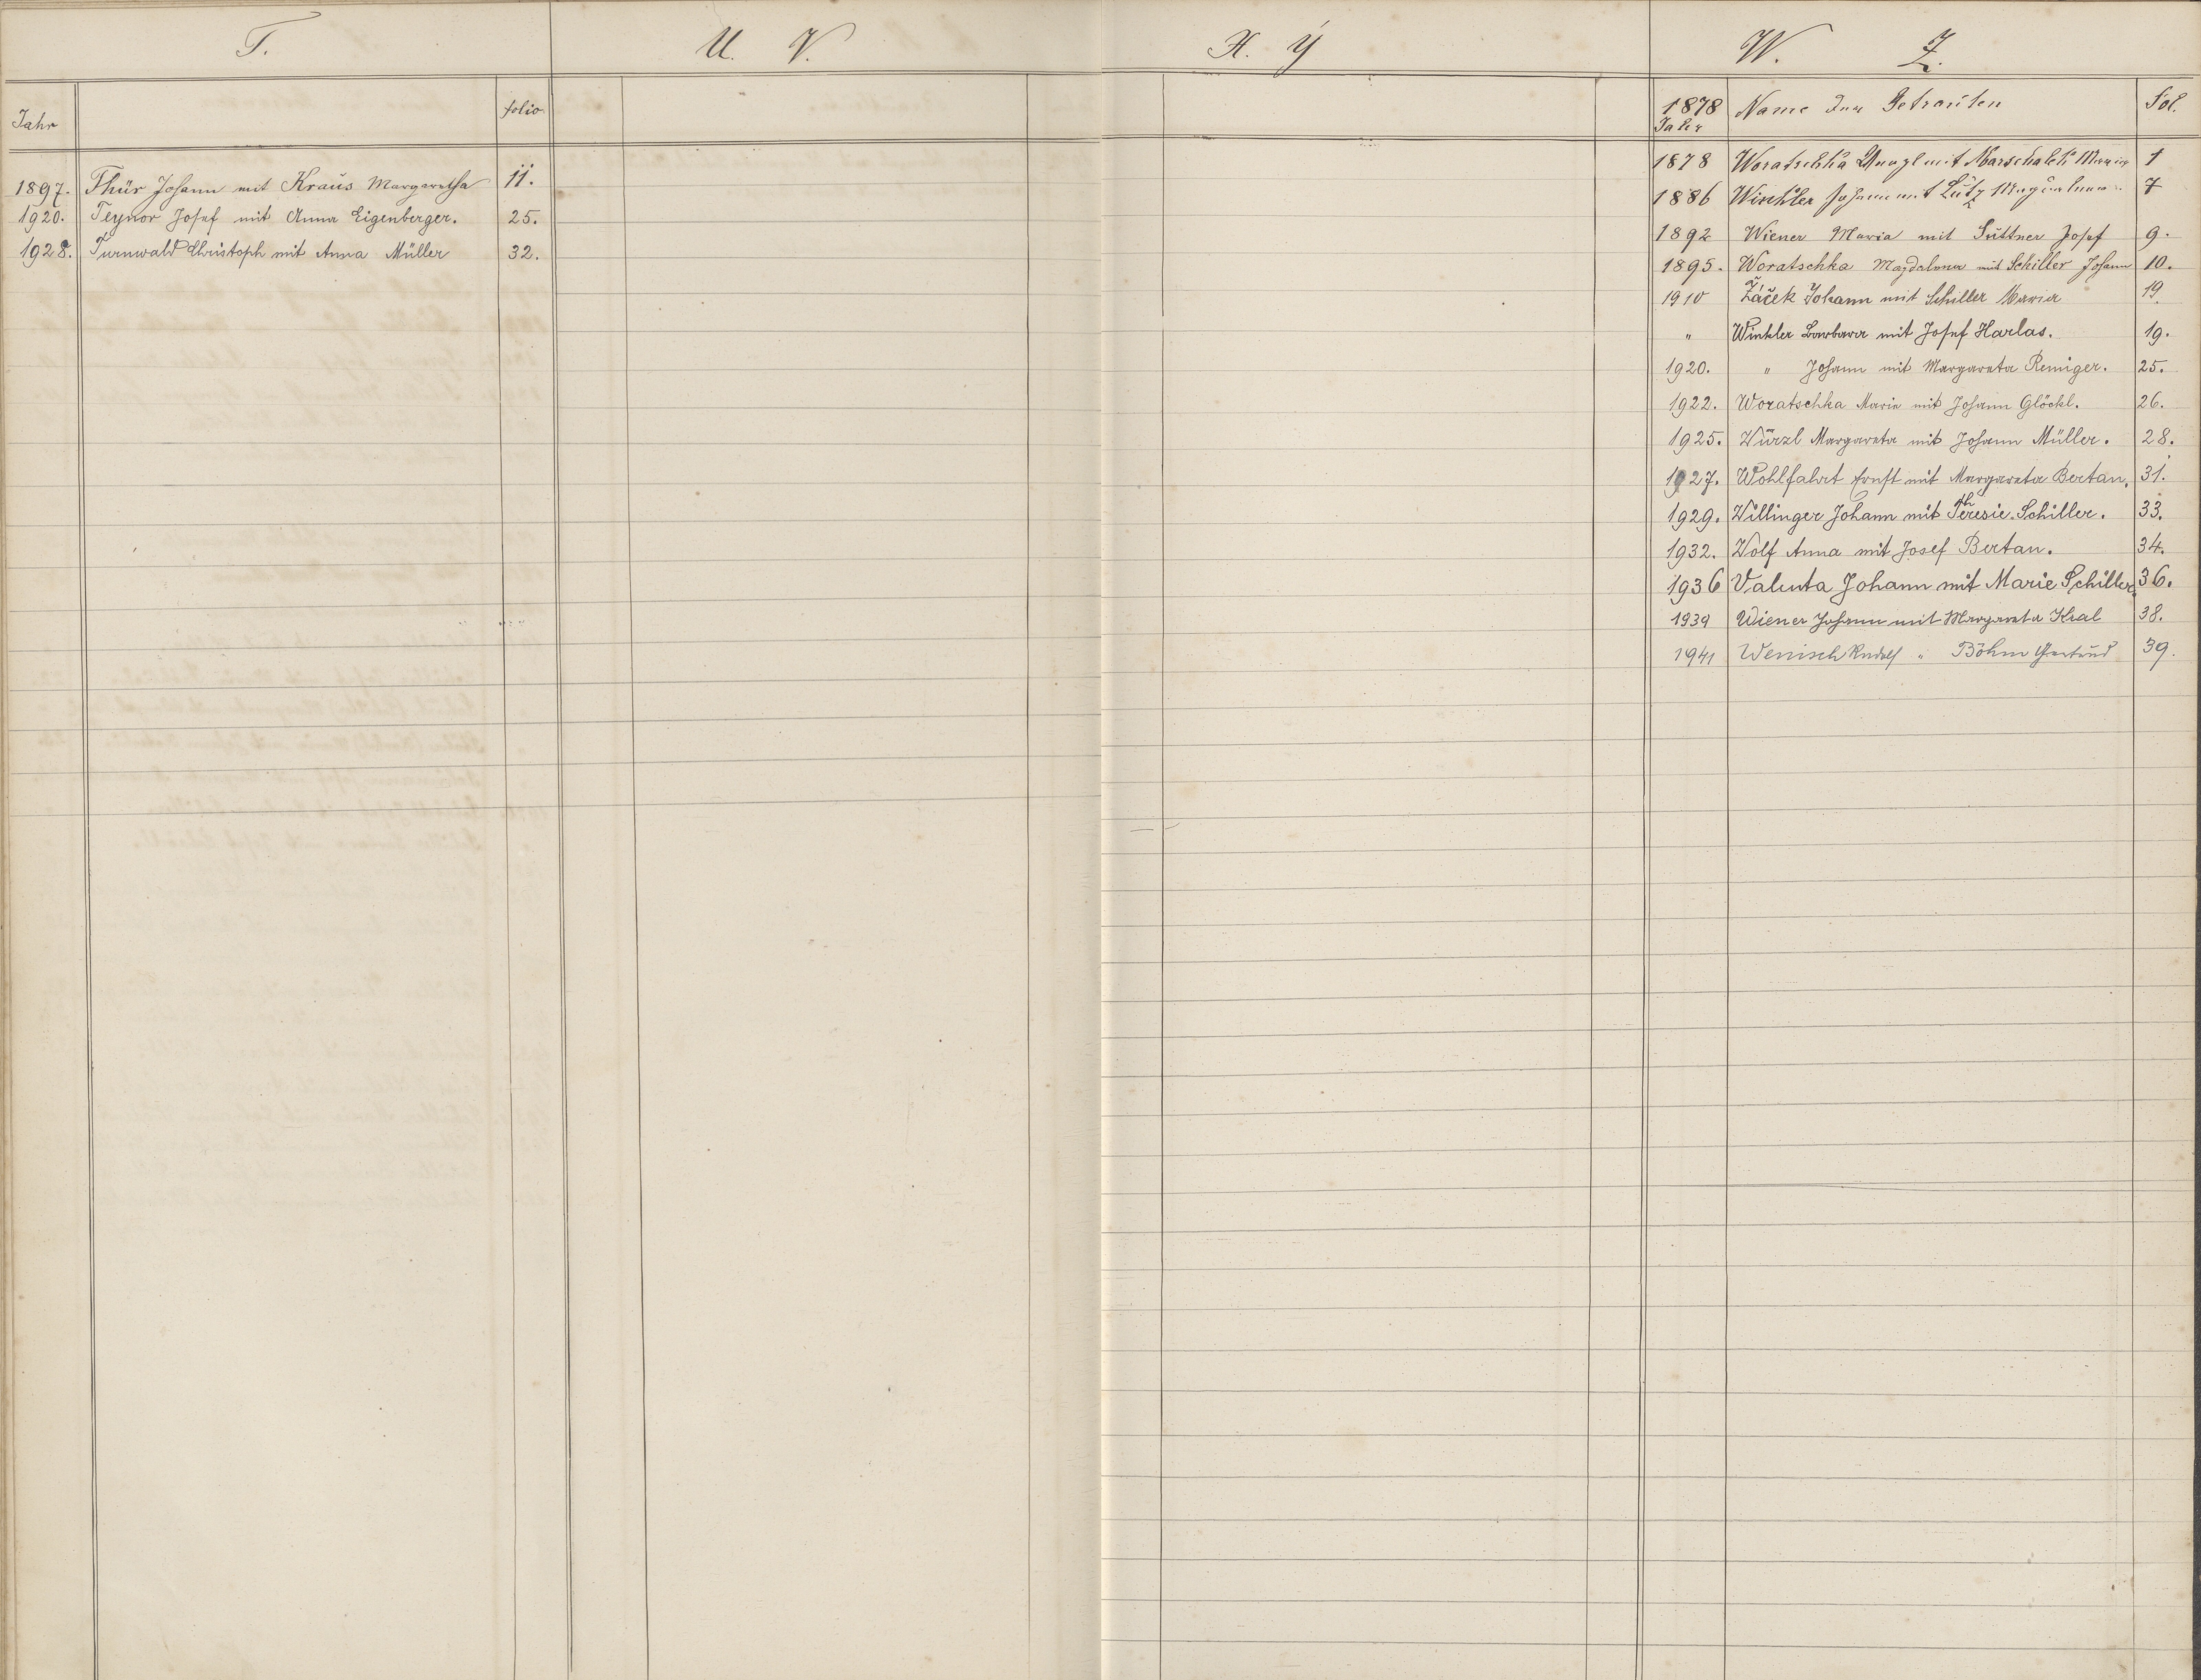 T.
Jahr folio
1897. Thür Johann mit Kraus Margaretha 11.
1920. Teynor Josef mit Anna Eigenberger. 25.
1928. Turnwald Christoph mit Anna Müller 32.
U. V.
X. Y
W. Z.
1878 Name der Getrauten Fol.
Jahr
1878 Woratschka mit Marschalek Maria 1
1886 Winkler Johann mit Lutz Magdalena. 7
1892 Wiener Maria mit Suttner Josef 9.
1895. Woratschka Magdalena mit Schiller Johann 10.
1910 Žáček Johann mit Schiller Maria 19
" Winkler Barbara mit Josef Harlas. 19.
1920. " Johann mit Margareta Remiger. 25.
1922. Woratschka Marie mit Johann Glöckl. 26.
1925. Würzl Margareta mit Johann Müller. 28.
1927. Wohlfahrt Ernst mit Margareta Bertan. 31.
1929. Willinger Johann mit Theresie Schiller. 33.
1932. Wolf Anna mit Josef Bertan. 34.
1936 Valuta Johann mit Marie Schiller. 36.
1939 Wiener Johann mit Margareta Kral 38.
1941 Wenisch Rudolf " Böhm Gertrud 39.